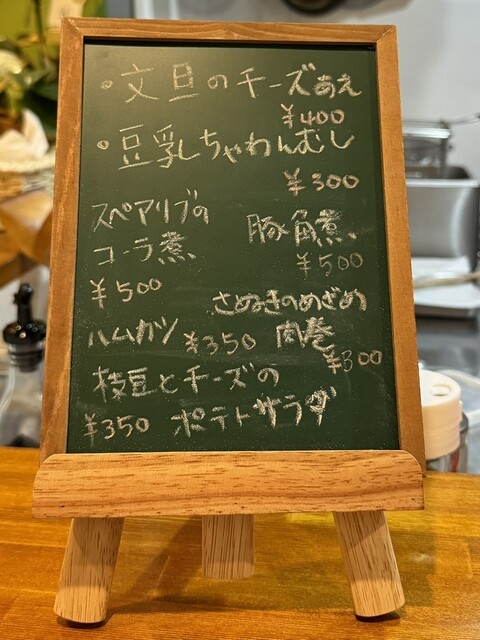 ・文旦のチーズあえ
¥400
・豆乳ちゃわんむし
¥300
スペアリブの
コーラ煮
¥500
豚角煮
¥500
さぬきのめざめ
肉巻
¥300
ハムカツ ¥350
枝豆とチーズの
ポテトサラダ
¥350